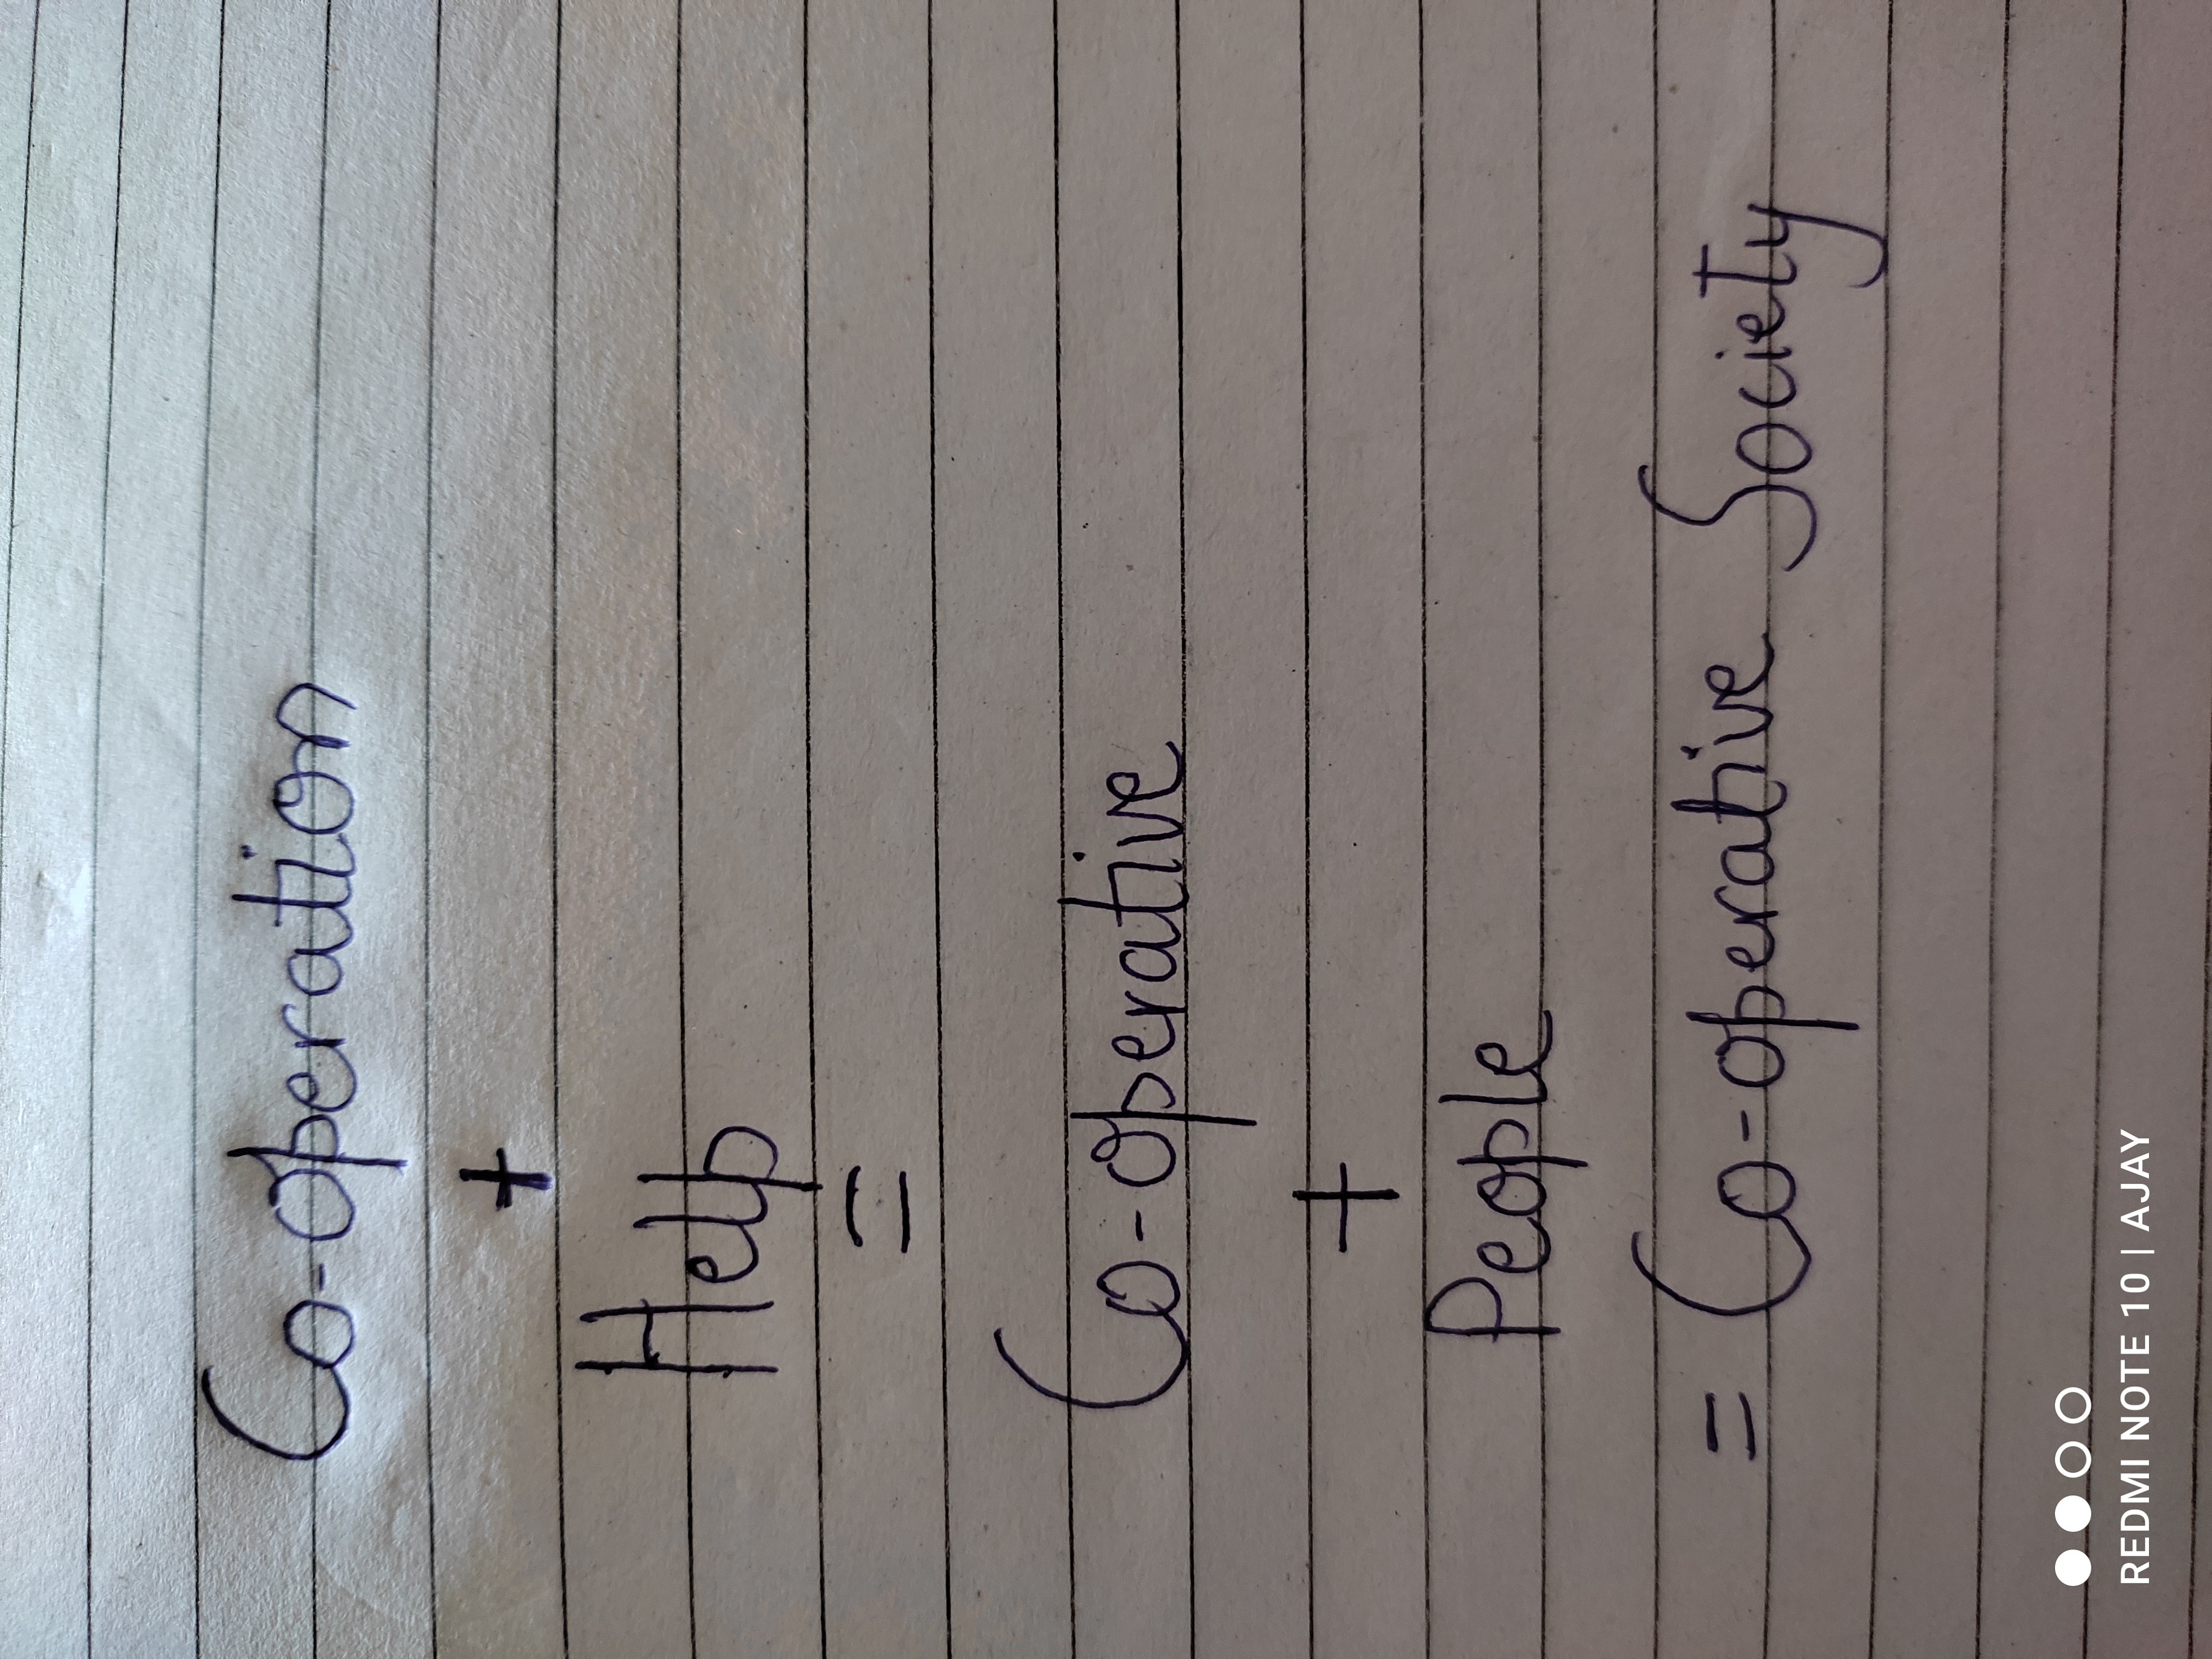 Co-operation
+
Help
=
Co-operative
+
People
= Co-operative Society
REDMI NOTE 10 | AJAY